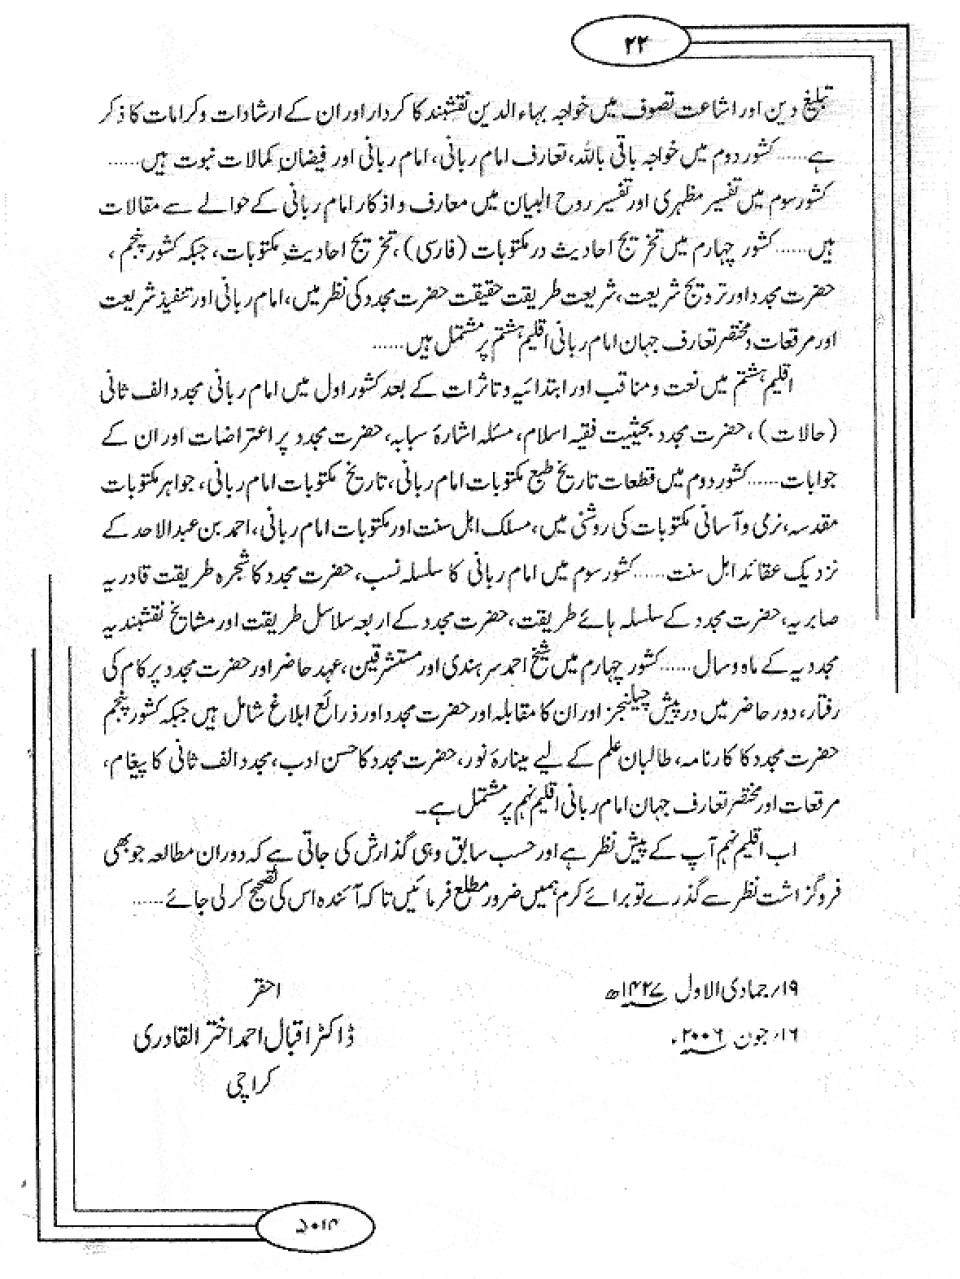 ۲۲
تبلیغ دین اور اشاعت تصوف میں خواجہ بہاء الدین نقشبند کا کردار اور ان کے ارشادات و کرامات کا ذکر
ہے...... کشور دوم میں خواجہ باقی باللہ، تعارف امام ربانی، امام ربانی اور فیضان کمالات نبوت ہیں......
کشور سوم میں تفسیر مظہری اور تفسیر روح البیان میں معارف و اذکار امام ربانی کے حوالے سے مقالات
ہیں...... کشور چہارم میں تخریج احادیث در مکتوبات (فارسی)، تخریج احادیثِ مکتوبات، جبکہ کشور پنجم،
حضرت مجدد اور ترویج شریعت، شریعت طریقت حقیقت حضرت مجدد کی نظر میں، امام ربانی اور تنفیذ شریعت
اور مرقعات و مختصر تعارف جہان امام ربانی اقلیم ہشتم پر مشتمل ہیں......
اقلیم ہشتم میں نعت و مناقب اور ابتدائیہ و تاثرات کے بعد کشور اول میں امام ربانی مجدد الف ثانی
(حالات)، حضرت مجدد بحیثیت فقیہ اسلام، مسئلہ اشارۂ سبابہ، حضرت مجدد پر اعتراضات اور ان کے
جوابات...... کشور دوم میں قطعات تاریخ طبع مکتوبات امام ربانی، تاریخ مکتوبات امام ربانی، جواہر مکتوبات
مقدسہ، نرمی و آسانی مکتوبات کی روشنی میں، مسلک اہل سنت اور مکتوبات امام ربانی، احمد بن عبدالاحد کے
نزدیک عقائد اہل سنت...... کشور سوم میں امام ربانی کا سلسلہ نسب، حضرت مجدد کا شجرہ طریقت قادریہ
صابریہ، حضرت مجدد کے سلسلہ ہائے طریقت، حضرت مجدد کے اربعہ سلاسل طریقت اور مشایخ نقشبندیہ
مجددیہ کے ماہ و سال...... کشور چہارم میں شیخ احمد سرہندی اور مستشرقین، عہد حاضر اور حضرت مجدد پر کام کی
رفتار، دور حاضر میں درپیش چیلنجز اور ان کا مقابلہ اور حضرت مجدد اور ذرائع ابلاغ شامل ہیں جبکہ کشور پنجم
حضرت مجدد کا کارنامہ، طالبان علم کے لیے مینارۂ نور، حضرت مجدد کا حسن ادب، مجدد الف ثانی کا پیغام،
مرقعات اور مختصر تعارف جہان امام ربانی اقلیم نہم پر مشتمل ہے۔
اب اقلیم نہم آپ کے پیش نظر ہے اور حسب سابق وہی گذارش کی جاتی ہے کہ دوران مطالعہ جو بھی
فروگزاشت نظر سے گذرے تو برائے کرم ہمیں ضرور مطلع فرمائیں تا کہ آئندہ اس کی تصحیح کر لی جائے......
۱۹؍ جمادی الاول ۱۴۲۷ھ
احقر
۱۶؍ جون ۲۰۰۶ء
ڈاکٹر اقبال احمد اختر القادری
کراچی